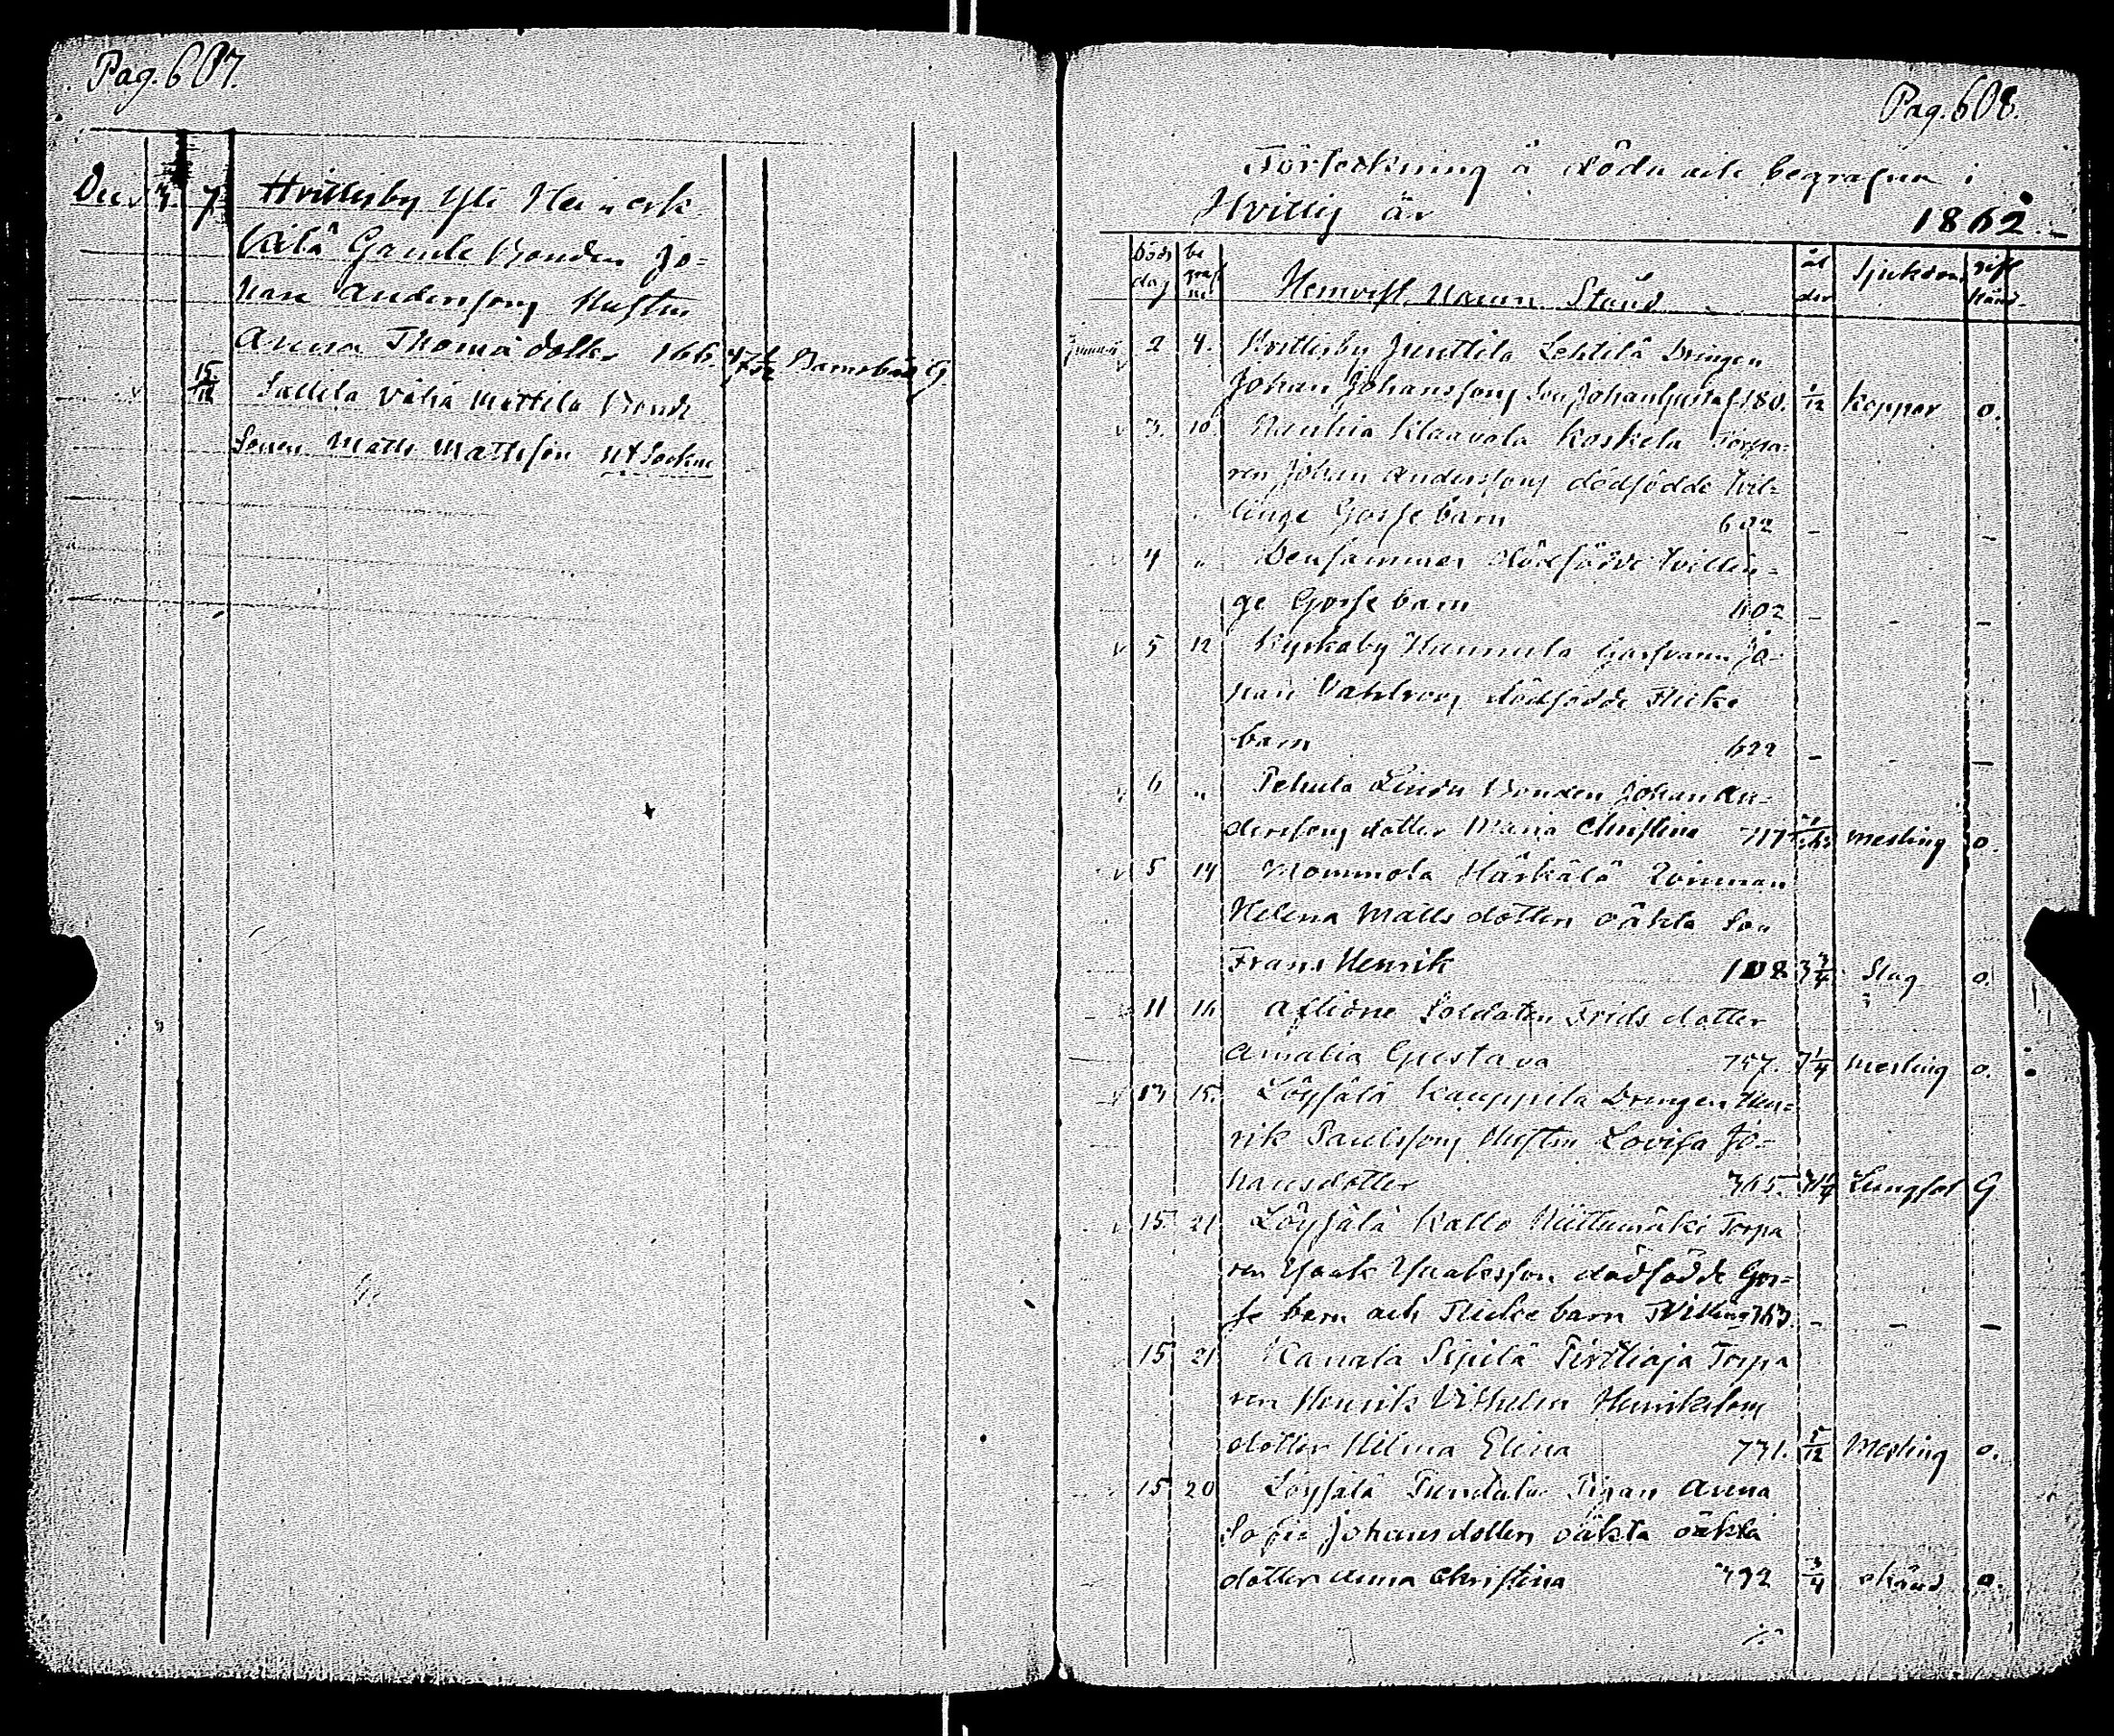 Pag. 607.
Dec. 3. 7 Hvittisby Yli Heinerk
kilä Gamle Bonden Jo=
han Anderssons Hustru
Anna Thomä dotter 166. Barnsbörd G
15/12 Sallila Vähä Mattila Bonde
Sonen Matts Mattsson ut Socknen
Pag. 608.
Förteckning å döde och begrafne i
Hvittis år 1862.
döds dag be graf ne Hemvist, Namn, Stånd ål der Sjukdom gift stånd
Januari 2 4. Hvittisby Junttila Lehtilä Drängen
Johan Johanssons Son Johan Gustaf 180. 1/12 koppor o.
3. 10. Rauhia Klaavola Koskela Torpa=
ren Johan Anderssons dödfödde Tvil=
linge Gosse barn 602 - - -
4 " Densammes dödfödde Tvillin=
ge Gosse barn 602 - - -
5 12 Kyrkoby Hannula Jo=
han dödfödde Flicke
barn 622 - - -
6 " Pehula Bonden Johan An=
derssons dotter Maria Christina 717 mesling o.
5 14 Mommola Härkälä Qvinnan
Helena Matts dotters oäkta Son
Frans Henrik 108 3 3/4 Slag o.
11 16 Aflidne Soldaten Frids dotter
Amalia Gustava 757. 7 1/4 mesling o.
13 15. Löysälä Kauppila Drängen Hen=
rik Paulssons Hustru Lovisa Jo=
hansdotter 765. Lungsot G
15. 21 Löysälä Kallo Niittumäki Torpa
ren Isaak Isaaksson dödfödde Gos=
se barn och Flicke barn Tvilling 763. - - -
15 21 Kanala Sipilä Torpa
ren Henrik Vilhelm Henrikssons
dotter Hilma Elina 771. 5/12 Mesling o.
15 20 Löysälä Pigan Anna
Sofia Johansdotters oäkta oäkta
dotter Anna Christina 792 3/4 okänd o.